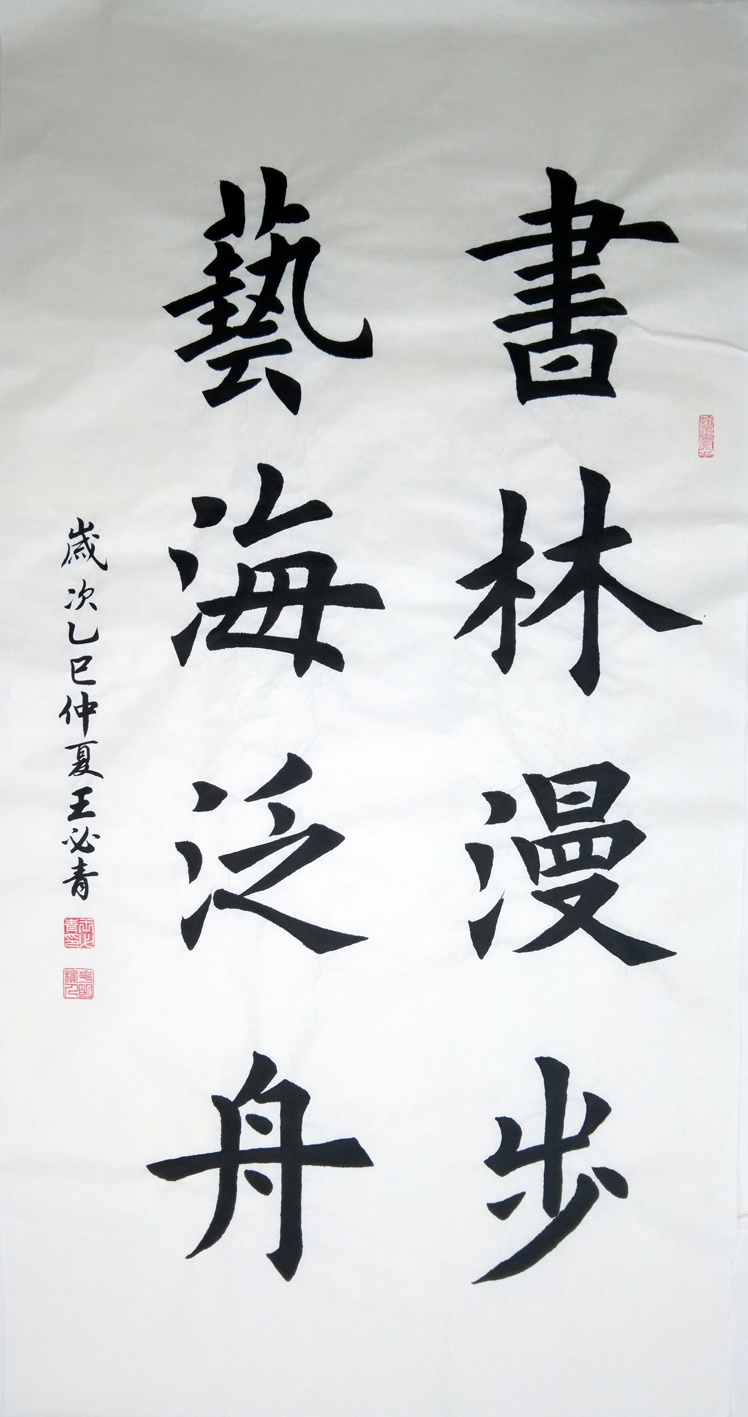 書林漫步
藝海泛舟
歲次乙巳仲夏王必青